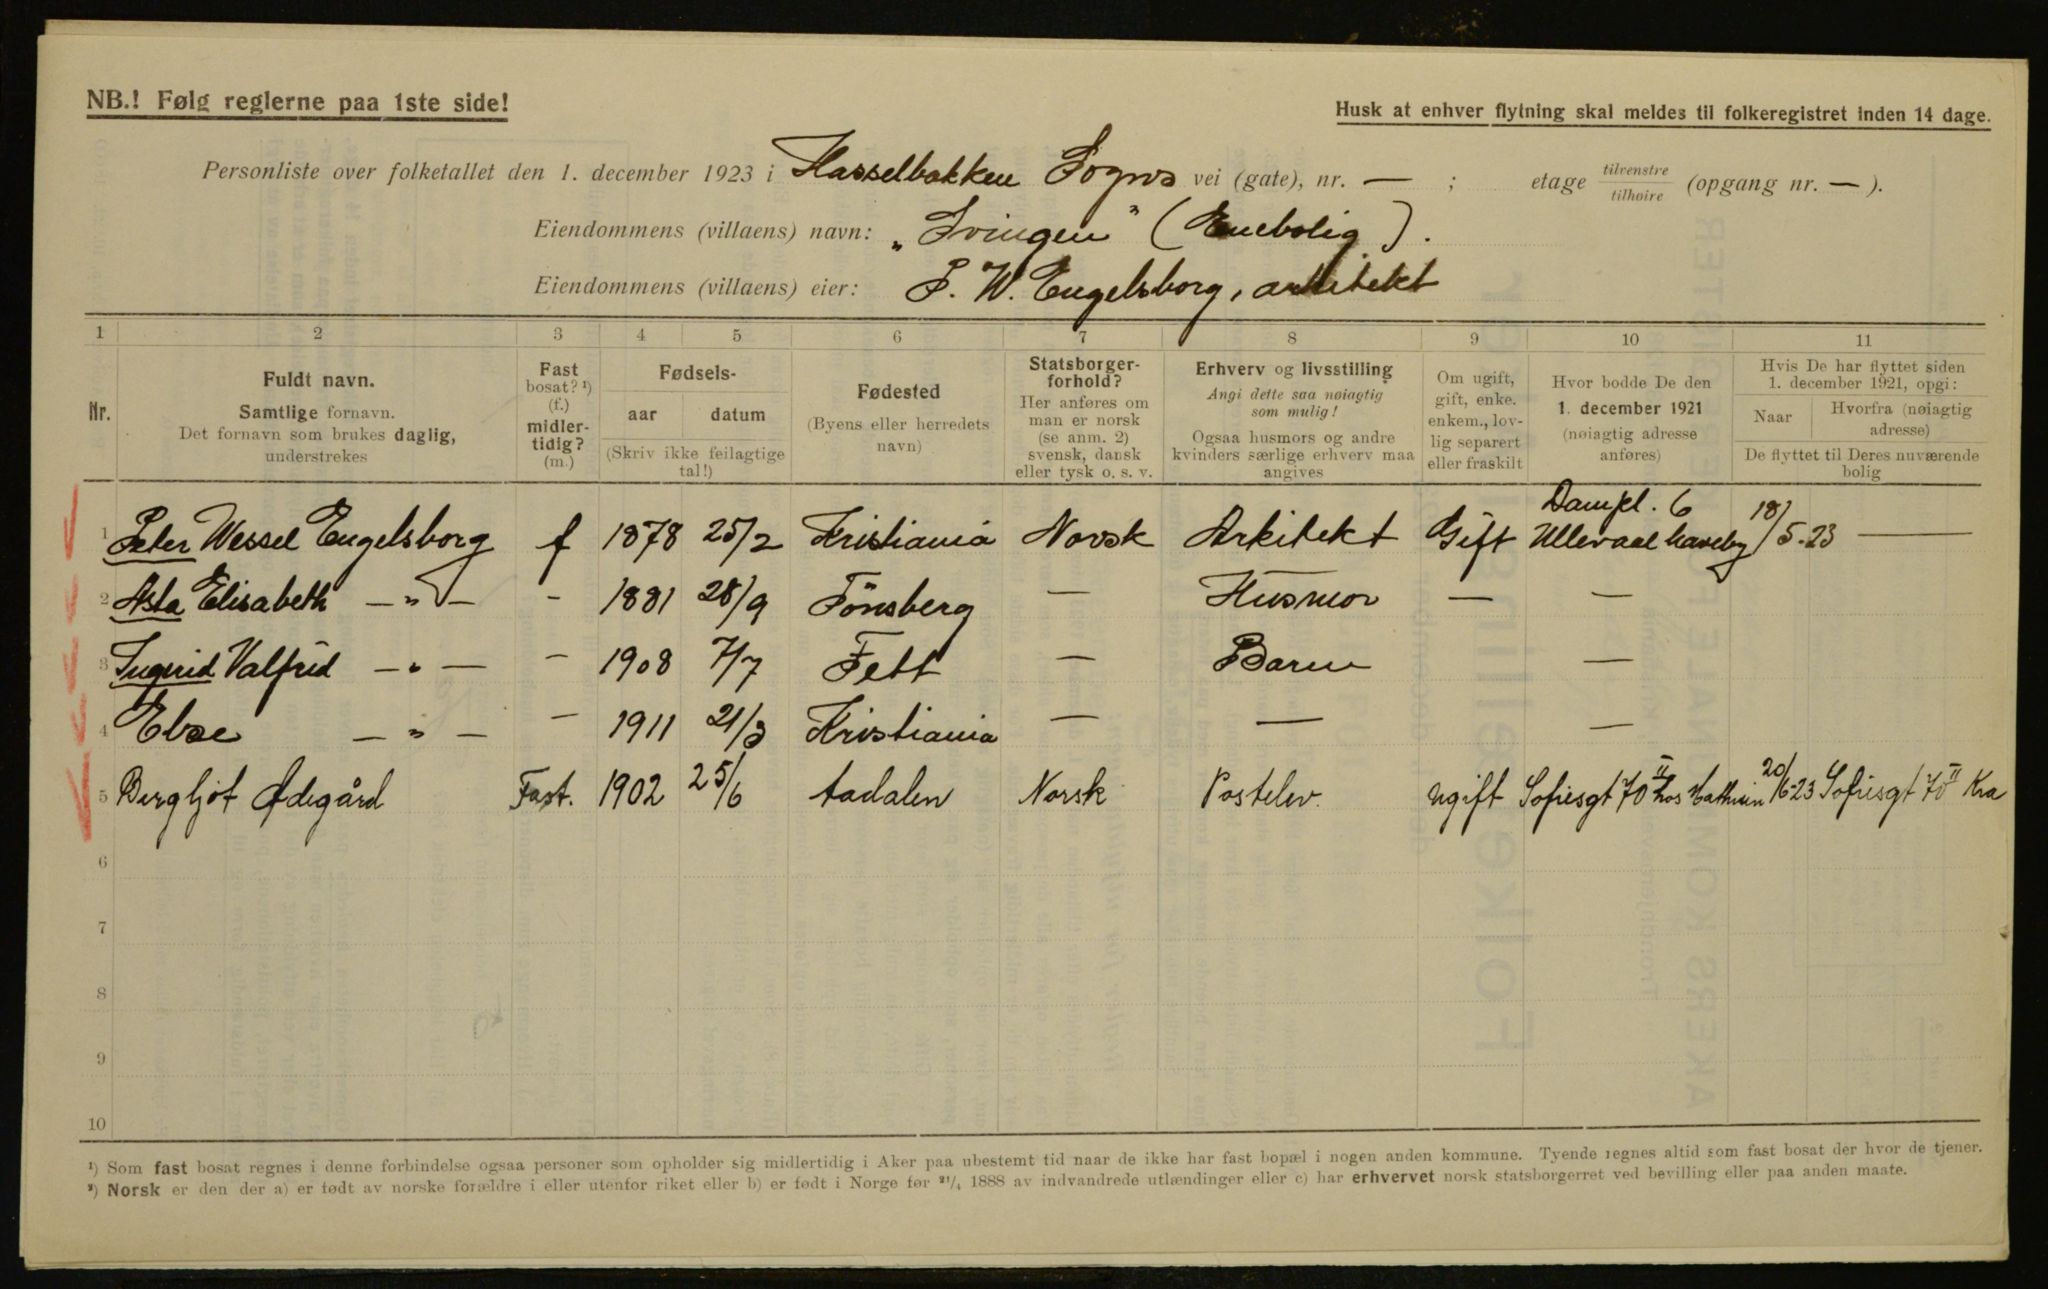 NB.! Følg reglerne paa 1ste side!
Husk at enhver flytning skal meldes til folkeregistret inden 14 dage.
Personliste over folketallet den 1. december 1923 i Hasselbakken Sogns vei (gate), nr. — ; etage tilvenstre tilhøire (opgang nr. — ).
Eiendommens (villaens) navn: „Svingen" (Enebolig).
Eiendommens (villaens) eier: P. W. Engelsborg, arkitekt
1 2 3 4 5 6 7 8 9 10 11
Nr.
Fuldt navn.
Samtlige fornavn.
Det fornavn som brukes daglig,
understrekes
Fast
bosat? ¹)
(f.)
midler-
tidig?
(m.)
Fødsels-
aar datum
(Skriv ikke feilagtige
tal!)
Fødested
(Byens eller herredets
navn)
Statsborger-
forhold?
Her anføres om
man er norsk
(se anm. 2)
svensk, dansk
eller tysk o. s. v.
Erhverv og livsstilling
Angi dette saa nøiagtig
som mulig!
Ogsaa husmors og andre
kvinders særlige erhverv maa
angives
Om ugift,
gift, enke.
enkem., lov-
lig separert
eller fraskilt
Hvor bodde De den
1. december 1921
(nøiagtig adresse
anføres)
Hvis De har flyttet siden
1. december 1921, opgi:
Naar Hvorfra (nøiagtig
adresse)
De flyttet til Deres nuværende
bolig
1 Peter Wessel Engelsborg f 1878 25/2 Kristiania Norsk Arkitekt Gift Dampl. 6 Ullevaal haveby 18/5.23 —
2 Asta Elisabeth — „ — - 1881 28/9 Tönsberg — Husmor — —
3 Ingrid Valfrid — „ — - 1908 7/7 Fett — Barn —
4 Ebbe — „ — - 1911 21/3 Kristiania — — —
5 Bergljot Ødegård Fast. 1902 25/6 Aadalen Norsk Postelev. ugift Sofiesgt 70 II hos 20/6-23 Sofiesgt 70 II Kra
6
7
8
9
10
¹) Som fast bosat regnes i denne forbindelse ogsaa personer som opholder sig midlertidig i Aker paa ubestemt tid naar de ikke har fast bopæl i nogen anden kommune. Tyende regnes altid som fast bosat der hvor de tjener.
²) Norsk er den der a) er født av norske forældre i eller utenfor riket eller b) er født i Norge før ²¹/₄ 1888 av indvandrede utlændinger eller c) har erhvervet norsk statsborgerret ved bevilling eller paa anden maate.